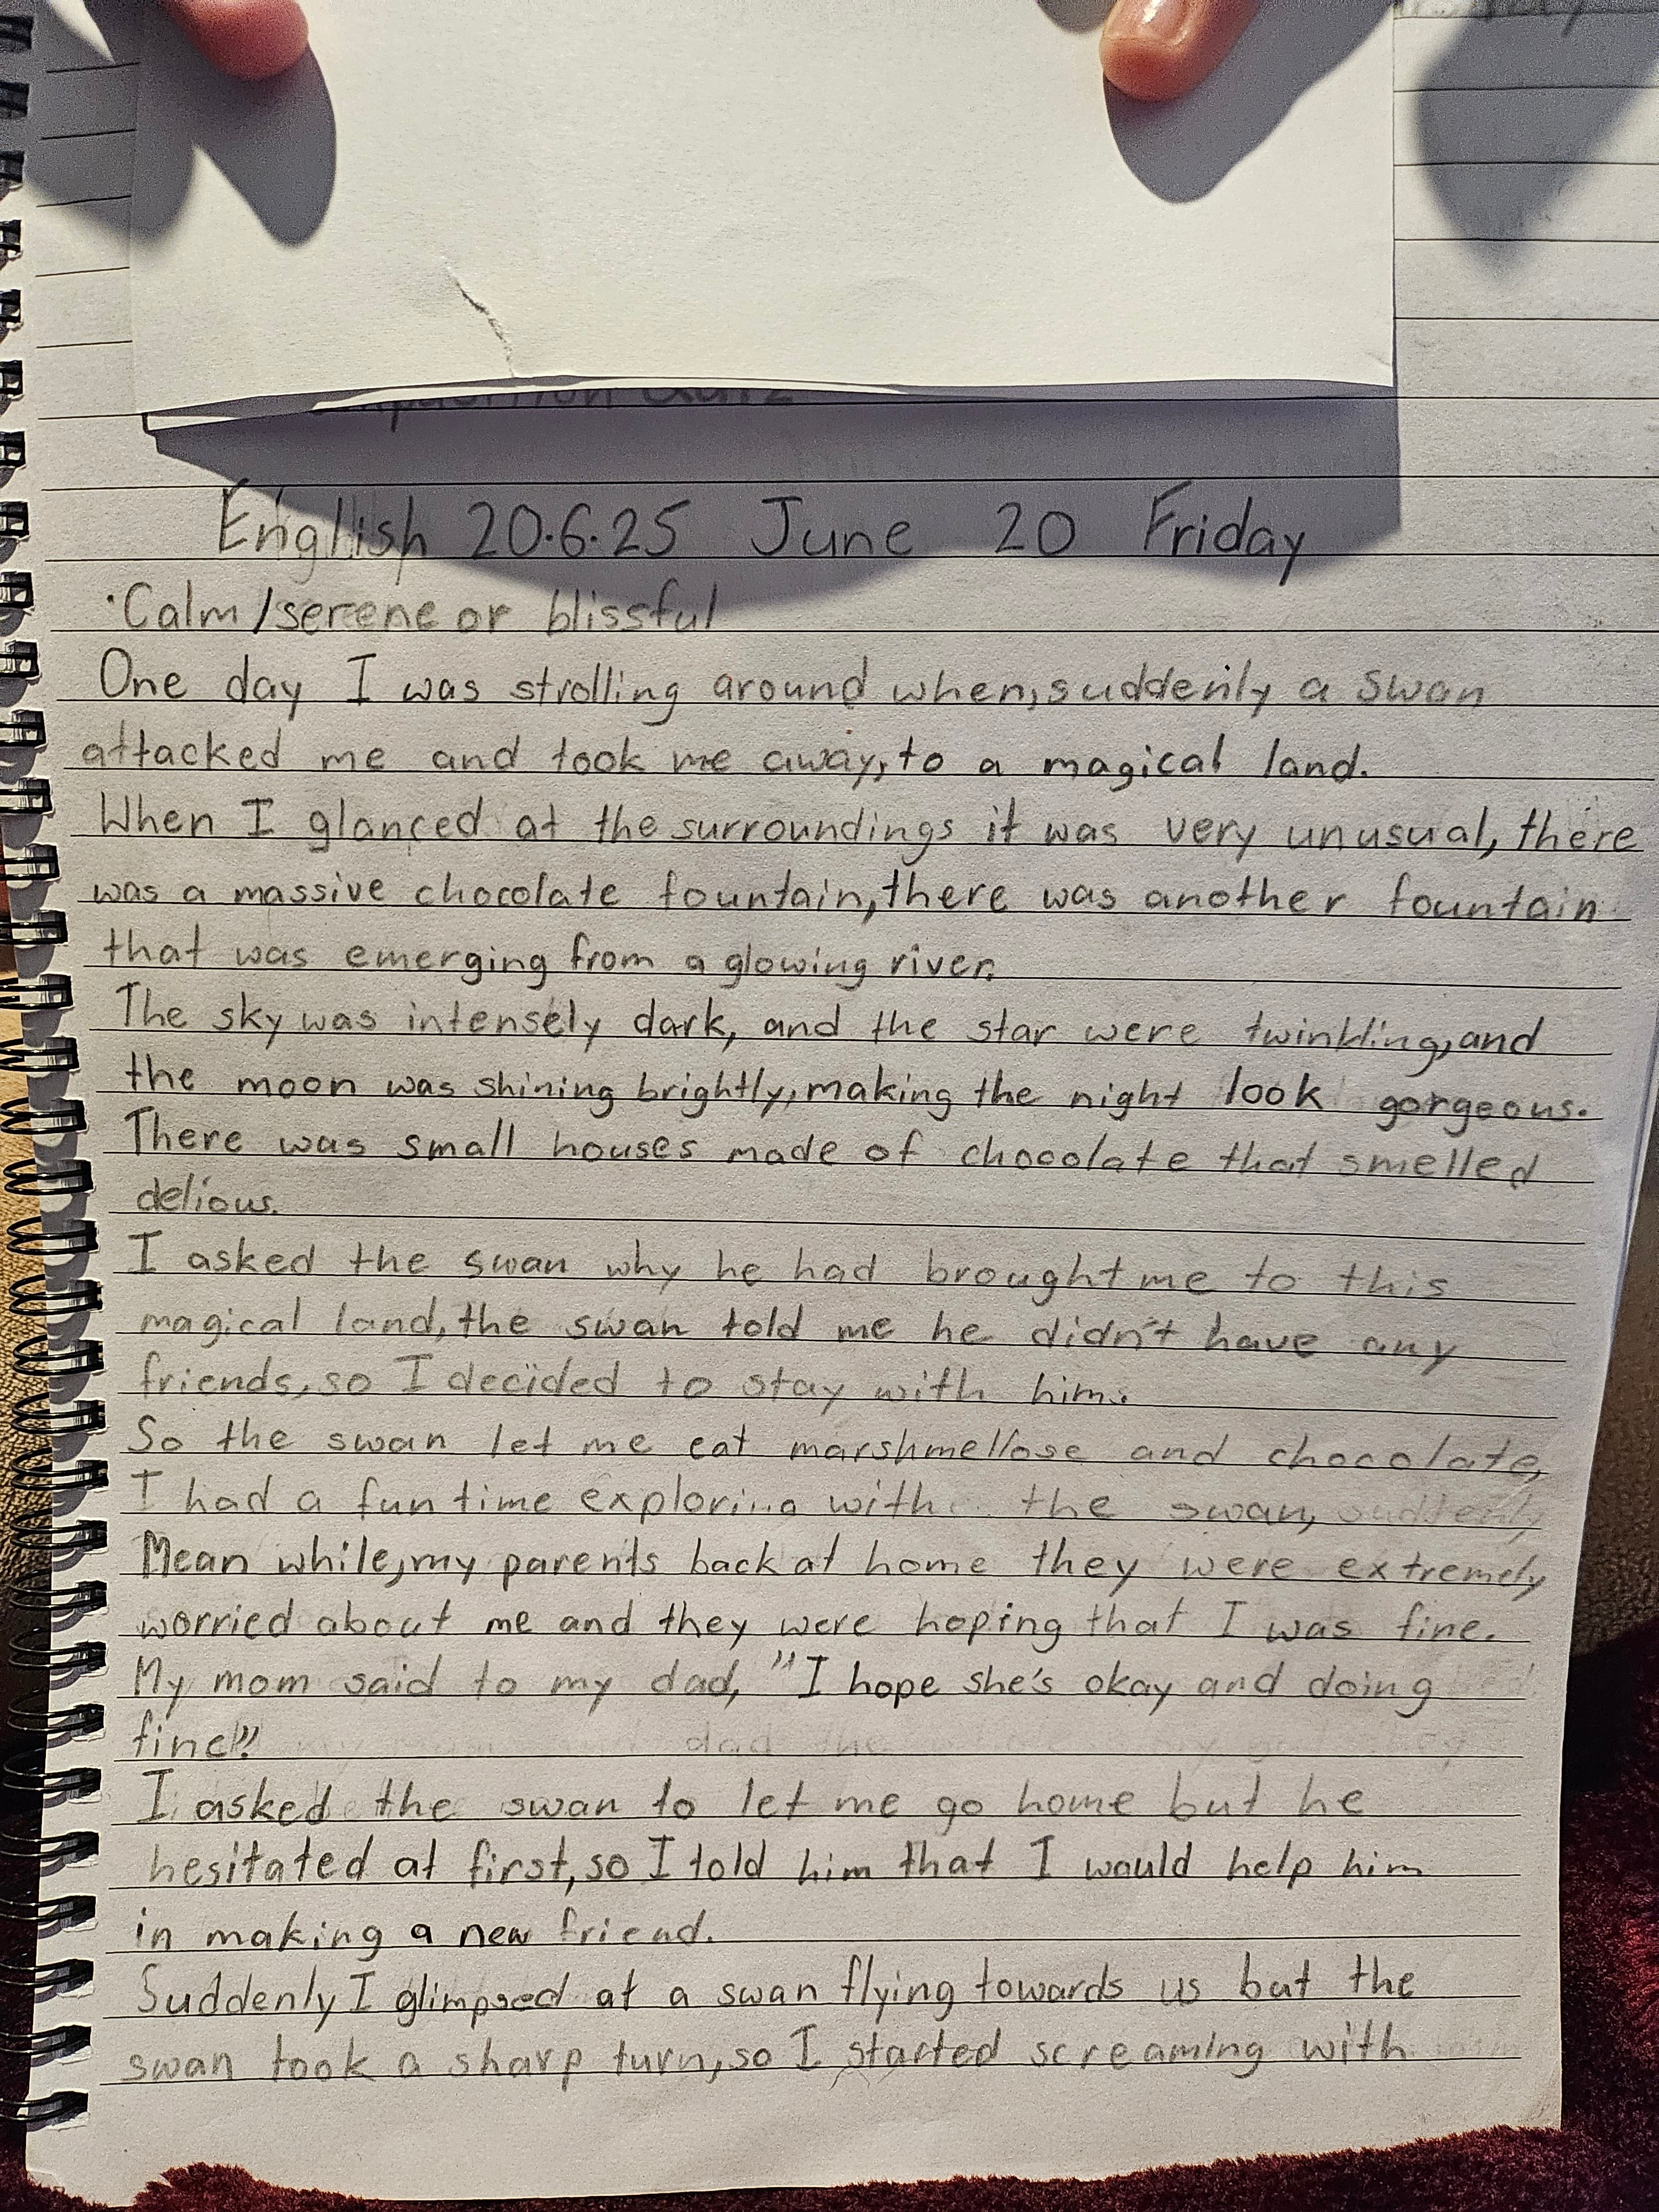 English 20.6.25 June 20 Friday
·Calm/serene or blissful
One day I was strolling around when, suddenly a swan
attacked me and took me away, to a magical land.
When I glanced at the surroundings it was very unusual, there
was a massive chocolate fountain, there was another fountain
that was emerging from a glowing river.
The sky was intensely dark, and the star were twinkling, and
the moon was shining brightly, making the night look gorgeous.
There was small houses made of chocolate that smelled
delious.
I asked the swan why he had brought me to this
magical land, the swan told me he didn't have any
friends, so I decided to stay with him.
So the swan let me eat marshmellose and chocolate,
I had a fun time exploring with the swan,
Mean while, my parents back at home they were extremely
worried about me and they were hoping that I was fine.
My mom said to my dad, "I hope she's okay and doing
fine!"
I asked the swan to let me go home but he
hesitated at first, so I told him that I would help him
in making a new friend.
Suddenly I glimpsed at a swan flying towards us but the
swan took a sharp turn, so I started screaming with